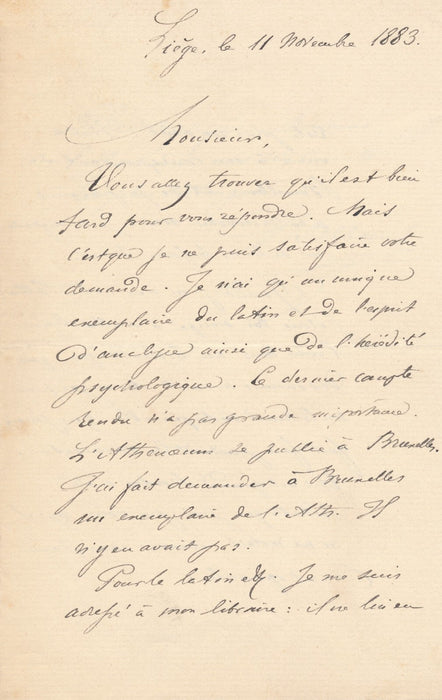 Liège, le 11 Novembre 1883.
Monsieur,
Vous allez trouver qu'il est bien
tard pour vous répondre. Mais
c'est que je ne puis satisfaire votre
demande. Je n'ai qu'un unique
exemplaire du latin et de l'esprit
d'analyse ainsi que de l'hérédité
psychologique. Ce dernier compte
rendu n'a pas grande importance.
L'Athenaeum se publie à Bruxelles.
J'ai fait demander à Bruxelles
un exemplaire de l'Ath. Il
n'y en avait pas.
Pour le latin etc. Je me suis
adressé à mon libraire : il ne lui en